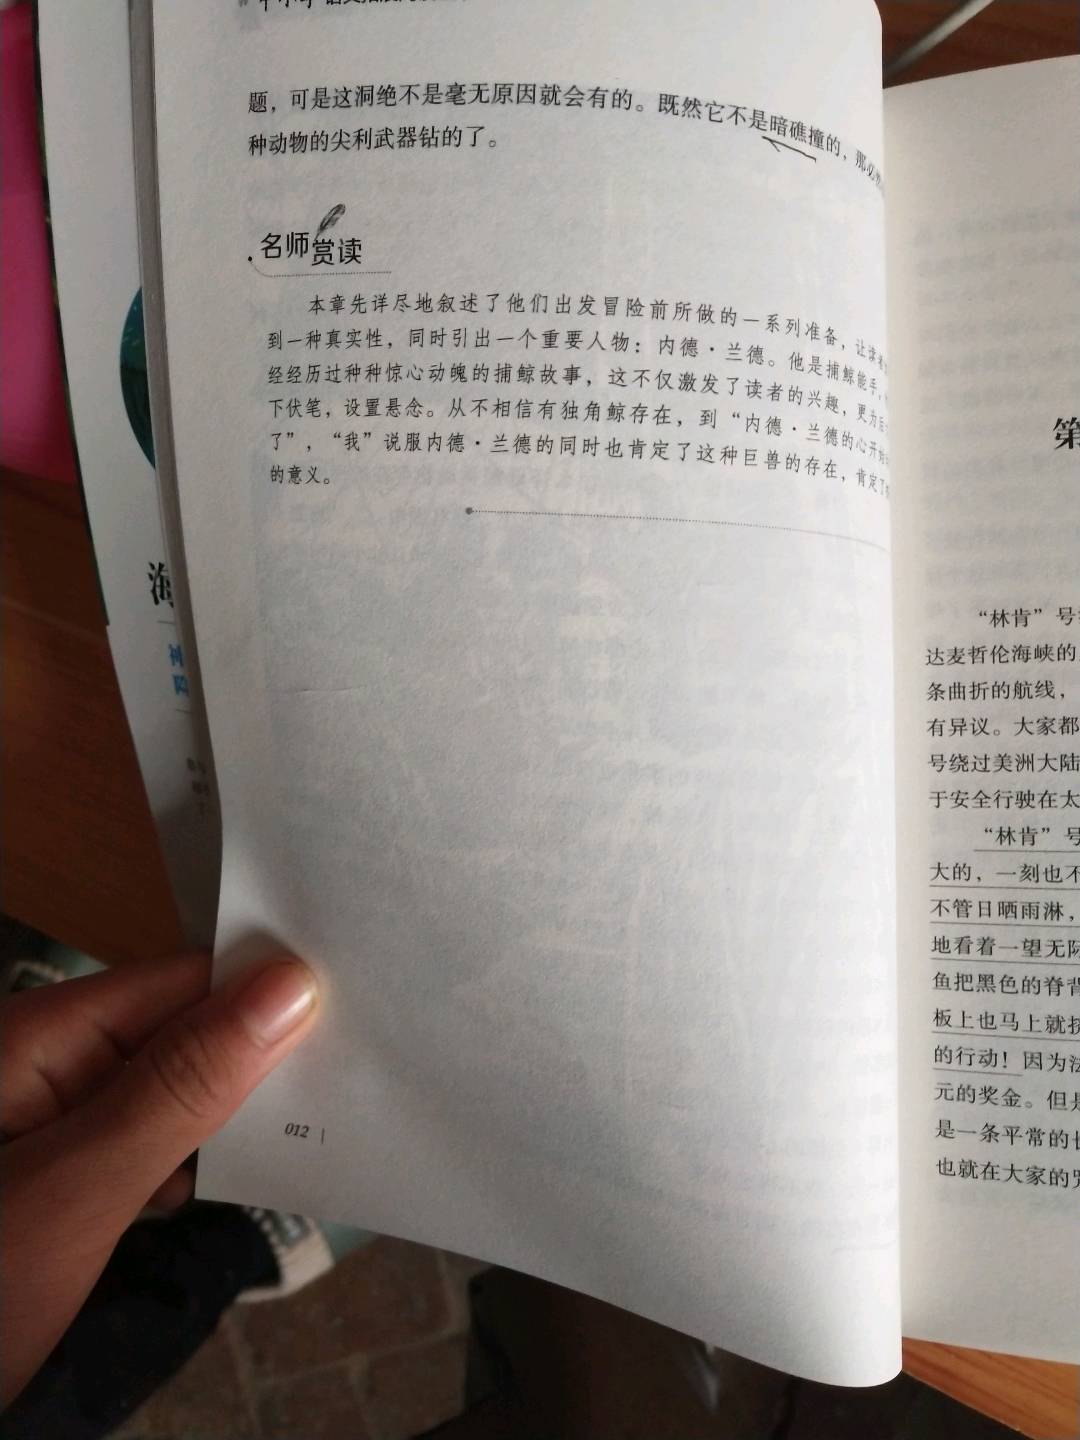 题，可是这洞绝不是毫无原因就会有的。既然它不是暗礁撞的，那必
种动物的尖利武器钻的了。
名师赏读
本章先详尽地叙述了他们出发冒险前所做的一系列准备，让读者
到一种真实性，同时引出一个重要人物：内德·兰德。他是捕鲸能手，
经经历过种种惊心动魄的捕鲸故事，这不仅激发了读者的兴趣，更为后
下伏笔，设置悬念。从不相信有独角鲸存在，到“内德·兰德的心开始
了”，“我”说服内德·兰德的同时也肯定了这种巨兽的存在，肯定了
的意义。
012
海
第
“林肯”号
达麦哲伦海峡的
条曲折的航线，
有异议。大家都
号绕过美洲大陆
于安全行驶在太
“林肯”号
大的，一刻也不
不管日晒雨淋，
地看着一望无际
鱼把黑色的脊背
板上也马上就挤
的行动！因为法
元的奖金。但是
是一条平常的
也就在大家的